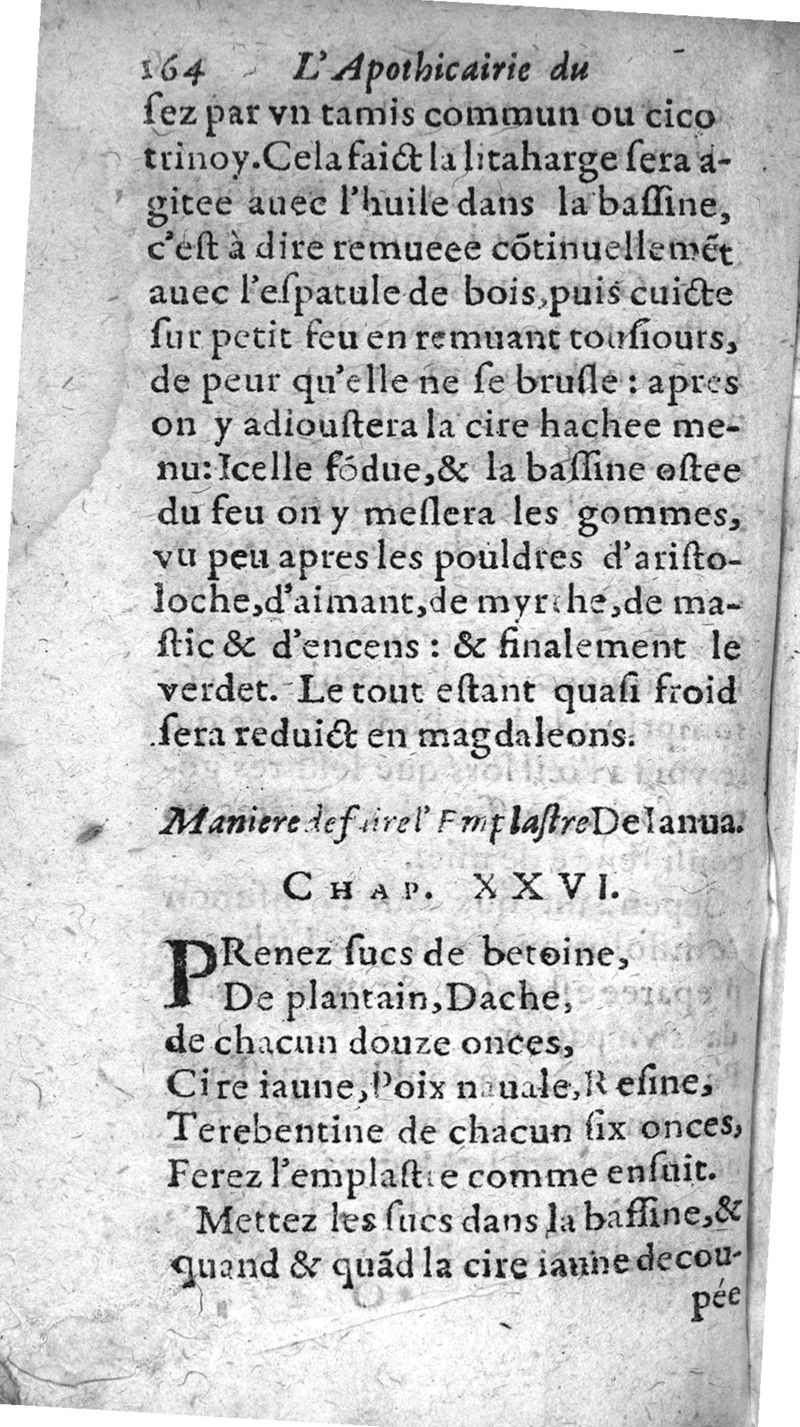 164 L'Apothicairie du
ſez par vn tamis commun ou cico
trinoy. Cela faict la litaharge ſera a-
gitee auec l'huile dans la baſſine,
c'eſt à dire remueee cõtinuellemẽt
auec l'eſpatule de bois, puis cuicte
ſur petit feu en remuant touſiours,
de peur qu'elle ne ſe bruſle : apres
on y adiouſtera la cire hachee me-
nu: Icelle fõdue, & la baſſine oſtee
du feu on y meſlera les gommes,
vu peu apres les pouldres d'ariſto-
loche, d'aimant, de myrrhe, de ma-
ſtic & d'encens : & finalement le
verdet. Le tout eſtant quaſi froid
ſera reduict en magdaleons.
Maniere de faire l'Emplaſtre De Ianua.
CHAP. XXVI.
PRenez ſucs de betoine,
De plantain, Dache,
de chacun douze onces,
Cire iaune, Poix nauale, Reſine,
Terebentine de chacun ſix onces,
Ferez l'emplaſtre comme enſuit.
Mettez les ſucs dans la baſſine, &
quand & quãd la cire iaune decou-
pée